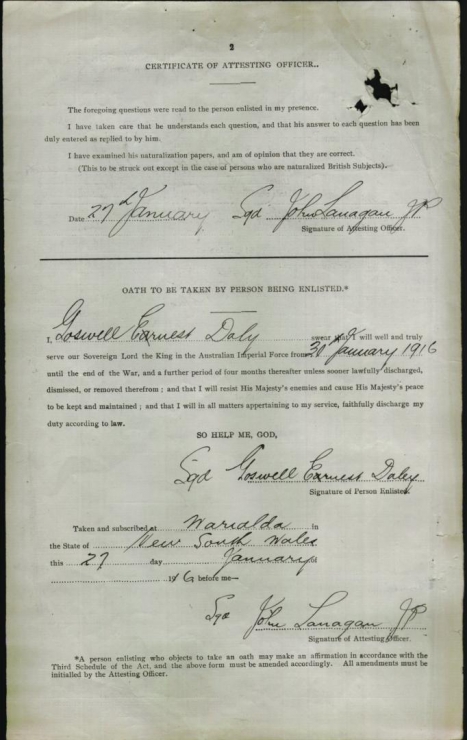 2
CERTIFICATE OF ATTESTING OFFICER.
The foregoing questions were read to the person enlisted in my presence.
I have taken care that he understands each question, and that his answer to each question has been
duly entered as replied to by him.
I have examined his naturalization papers, and am of opinion that they are correct.
(This to be struck out except in the case of persons who are naturalized British Subjects).
Date 27th January Sgd John Lanagan JP
Signature of Attesting Officer.
OATH TO BE TAKEN BY PERSON BEING ENLISTED.*
I, Goswell Earnest Daly swear that I will well and truly
serve our Sovereign Lord the King in the Australian Imperial Force from 31st January 1916
until the end of the War, and a further period of four months thereafter unless sooner lawfully discharged,
dismissed, or removed therefrom ; and that I will resist His Majesty's enemies and cause His Majesty's peace
to be kept and maintained ; and that I will in all matters appertaining to my service, faithfully discharge my
duty according to law.
SO HELP ME, GOD,
Sgd Goswell Earnest Daley
Signature of Person Enlisted.
Taken and subscribed at Warialda in
the State of New South Wales
this 27 day January of
1916 before me—
Sgd John Lanagan JP
Signature of Attesting Officer.
*A person enlisting who objects to take an oath may make an affirmation in accordance with the
Third Schedule of the Act, and the above form must be amended accordingly. All amendments must be
initialled by the Attesting Officer.